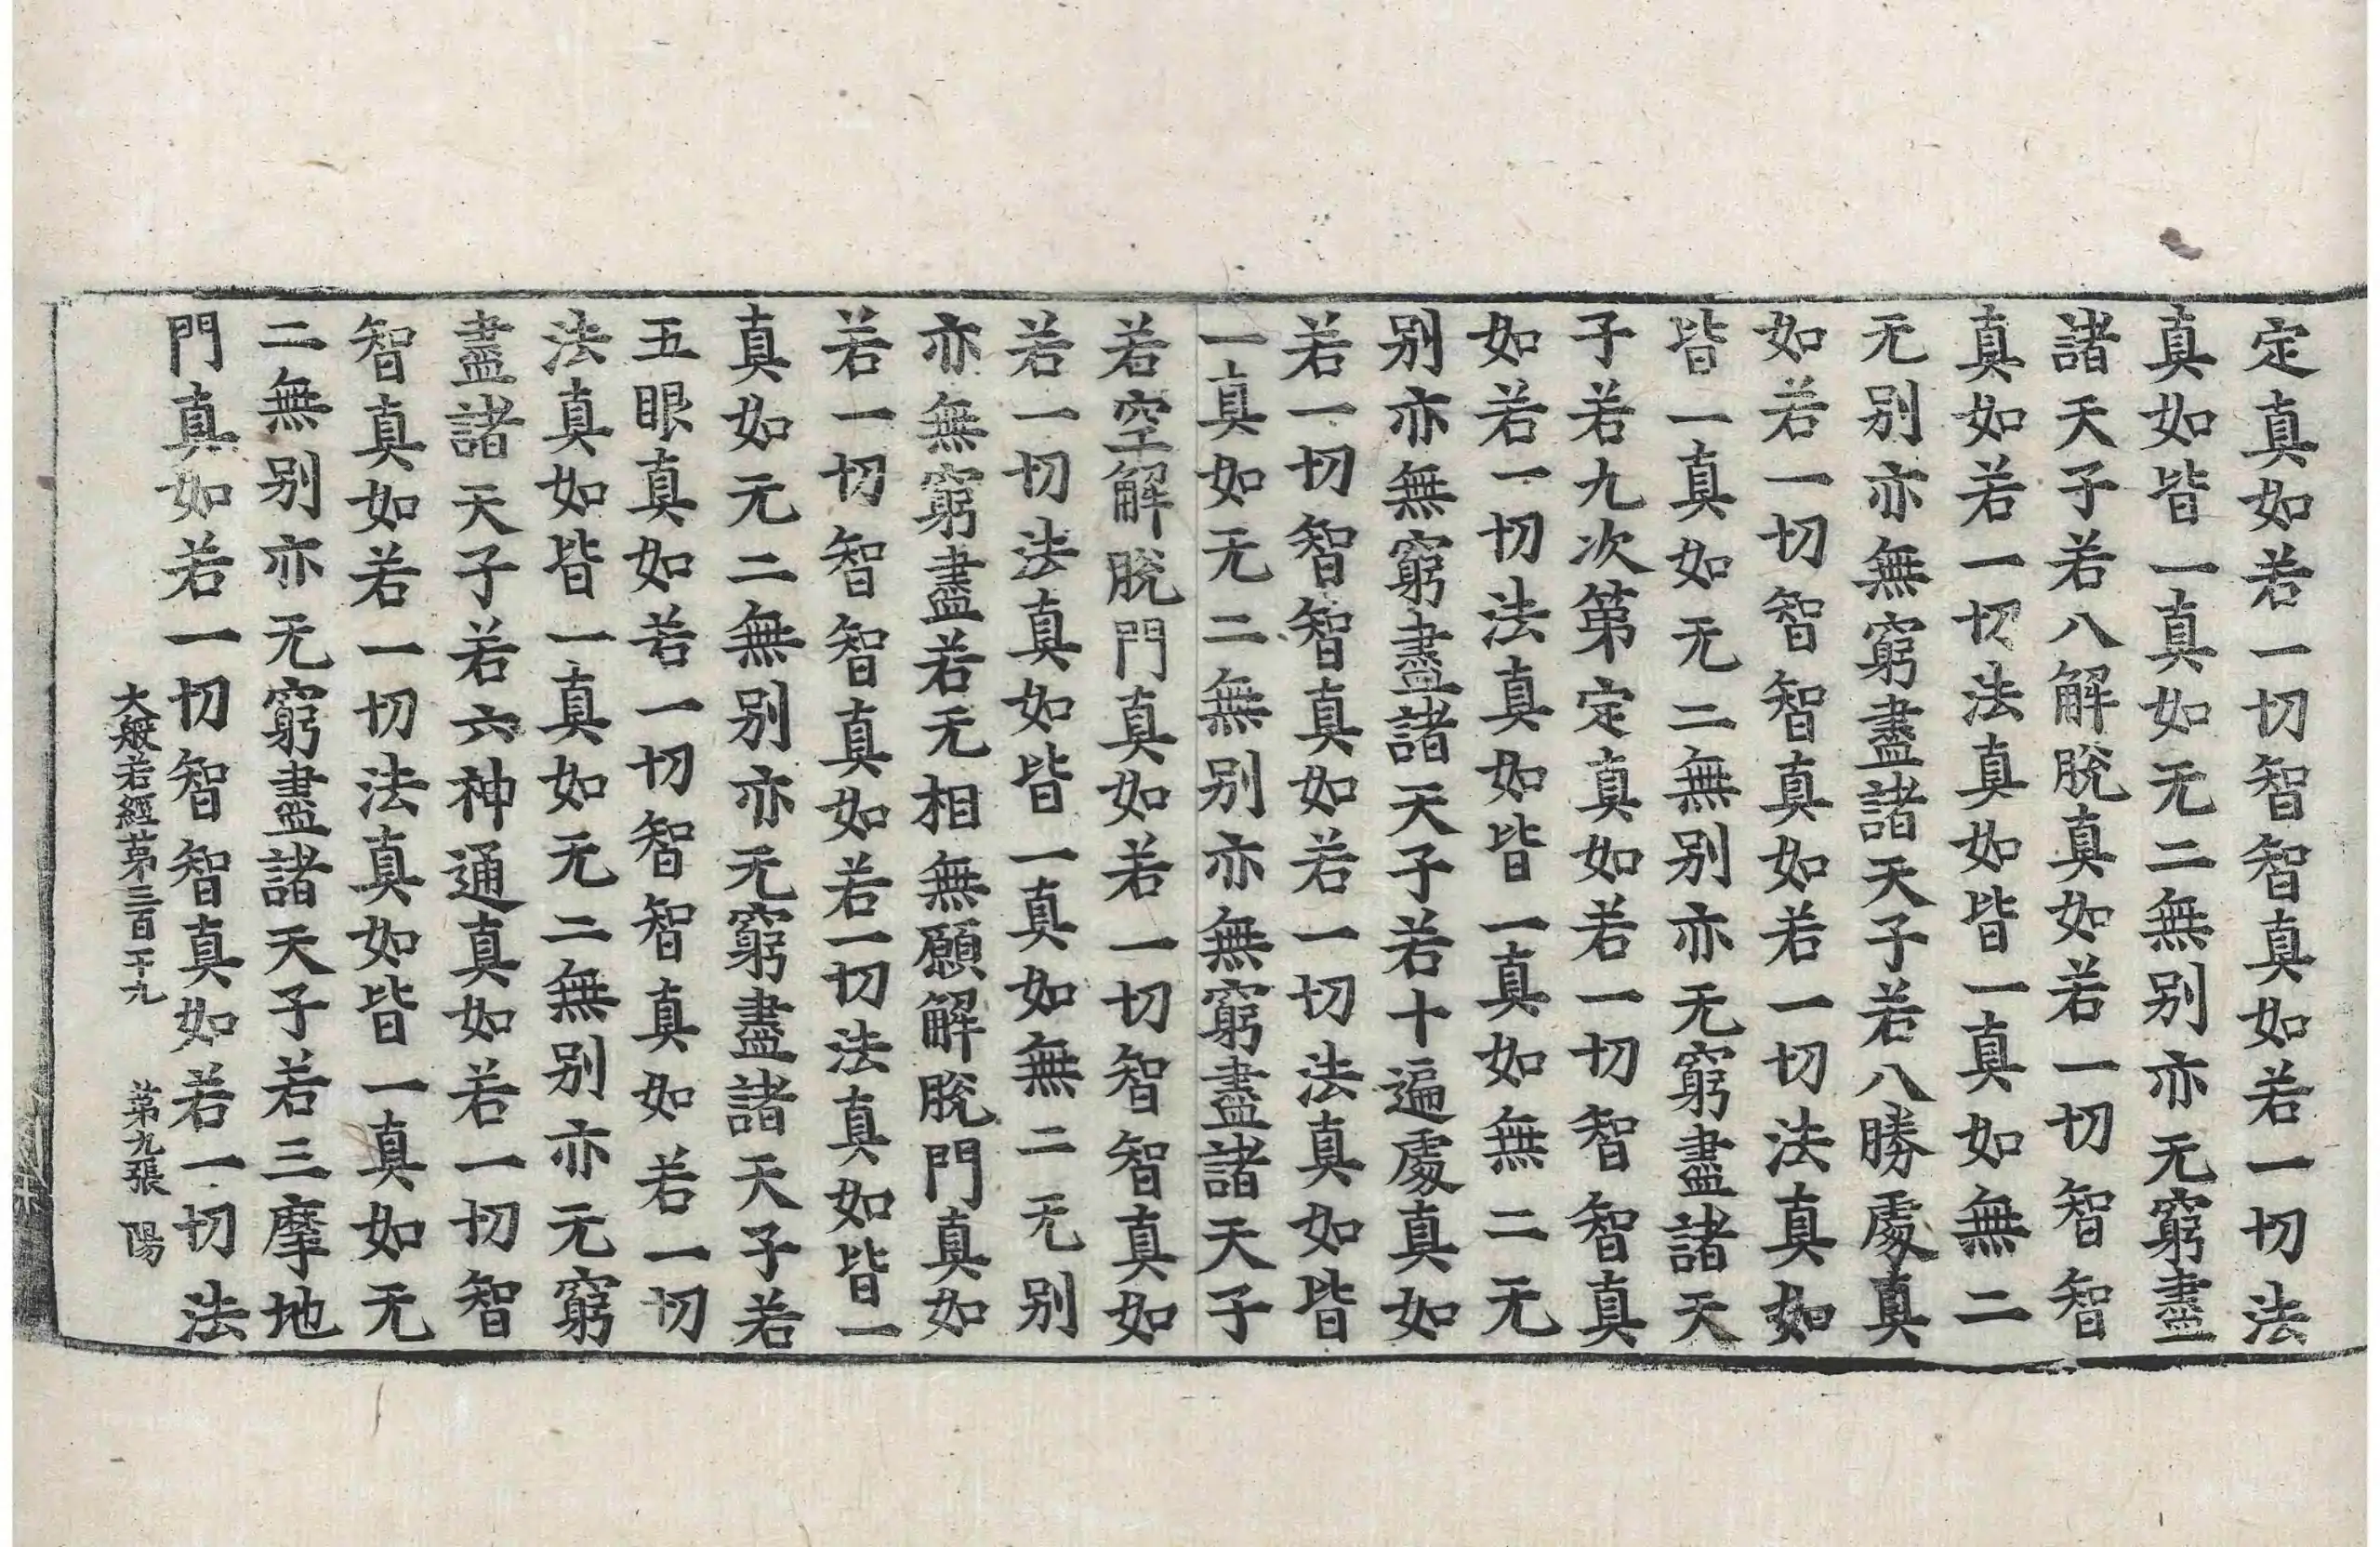 定真如若一切智智真如若一切法
真如皆一真如无二無别亦无窮盡
諸天子若八解脫真如若一切智智
真如若一切法真如皆一真如無二
无别亦無窮盡諸天子若八勝處真
如若一切智智真如若一切法真如
皆一真如无二無别亦无窮盡諸天
子若九次第定真如若一切智智真
如若一切法真如皆一真如無二无
别亦無窮盡諸天子若十遍處真如
若一切智智真如若一切法真如皆
一真如无二無别亦無窮盡諸天子
若空解脫門真如若一切智智真如
若一切法真如皆一真如無二无别
亦無窮盡若无相無願解脫門真如
若一切智智真如若一切法真如皆一
真如无二無别亦无窮盡諸天子若
五眼真如若一切智智真如若一切
法真如皆一真如无二無别亦无窮
盡諸天子若六神通真如若一切智
智真如若一切法真如皆一真如无
二無别亦无窮盡諸天子若三摩地
門真如若一切智智真如若一切法
大般若經苐三百一十九 苐九張 陽